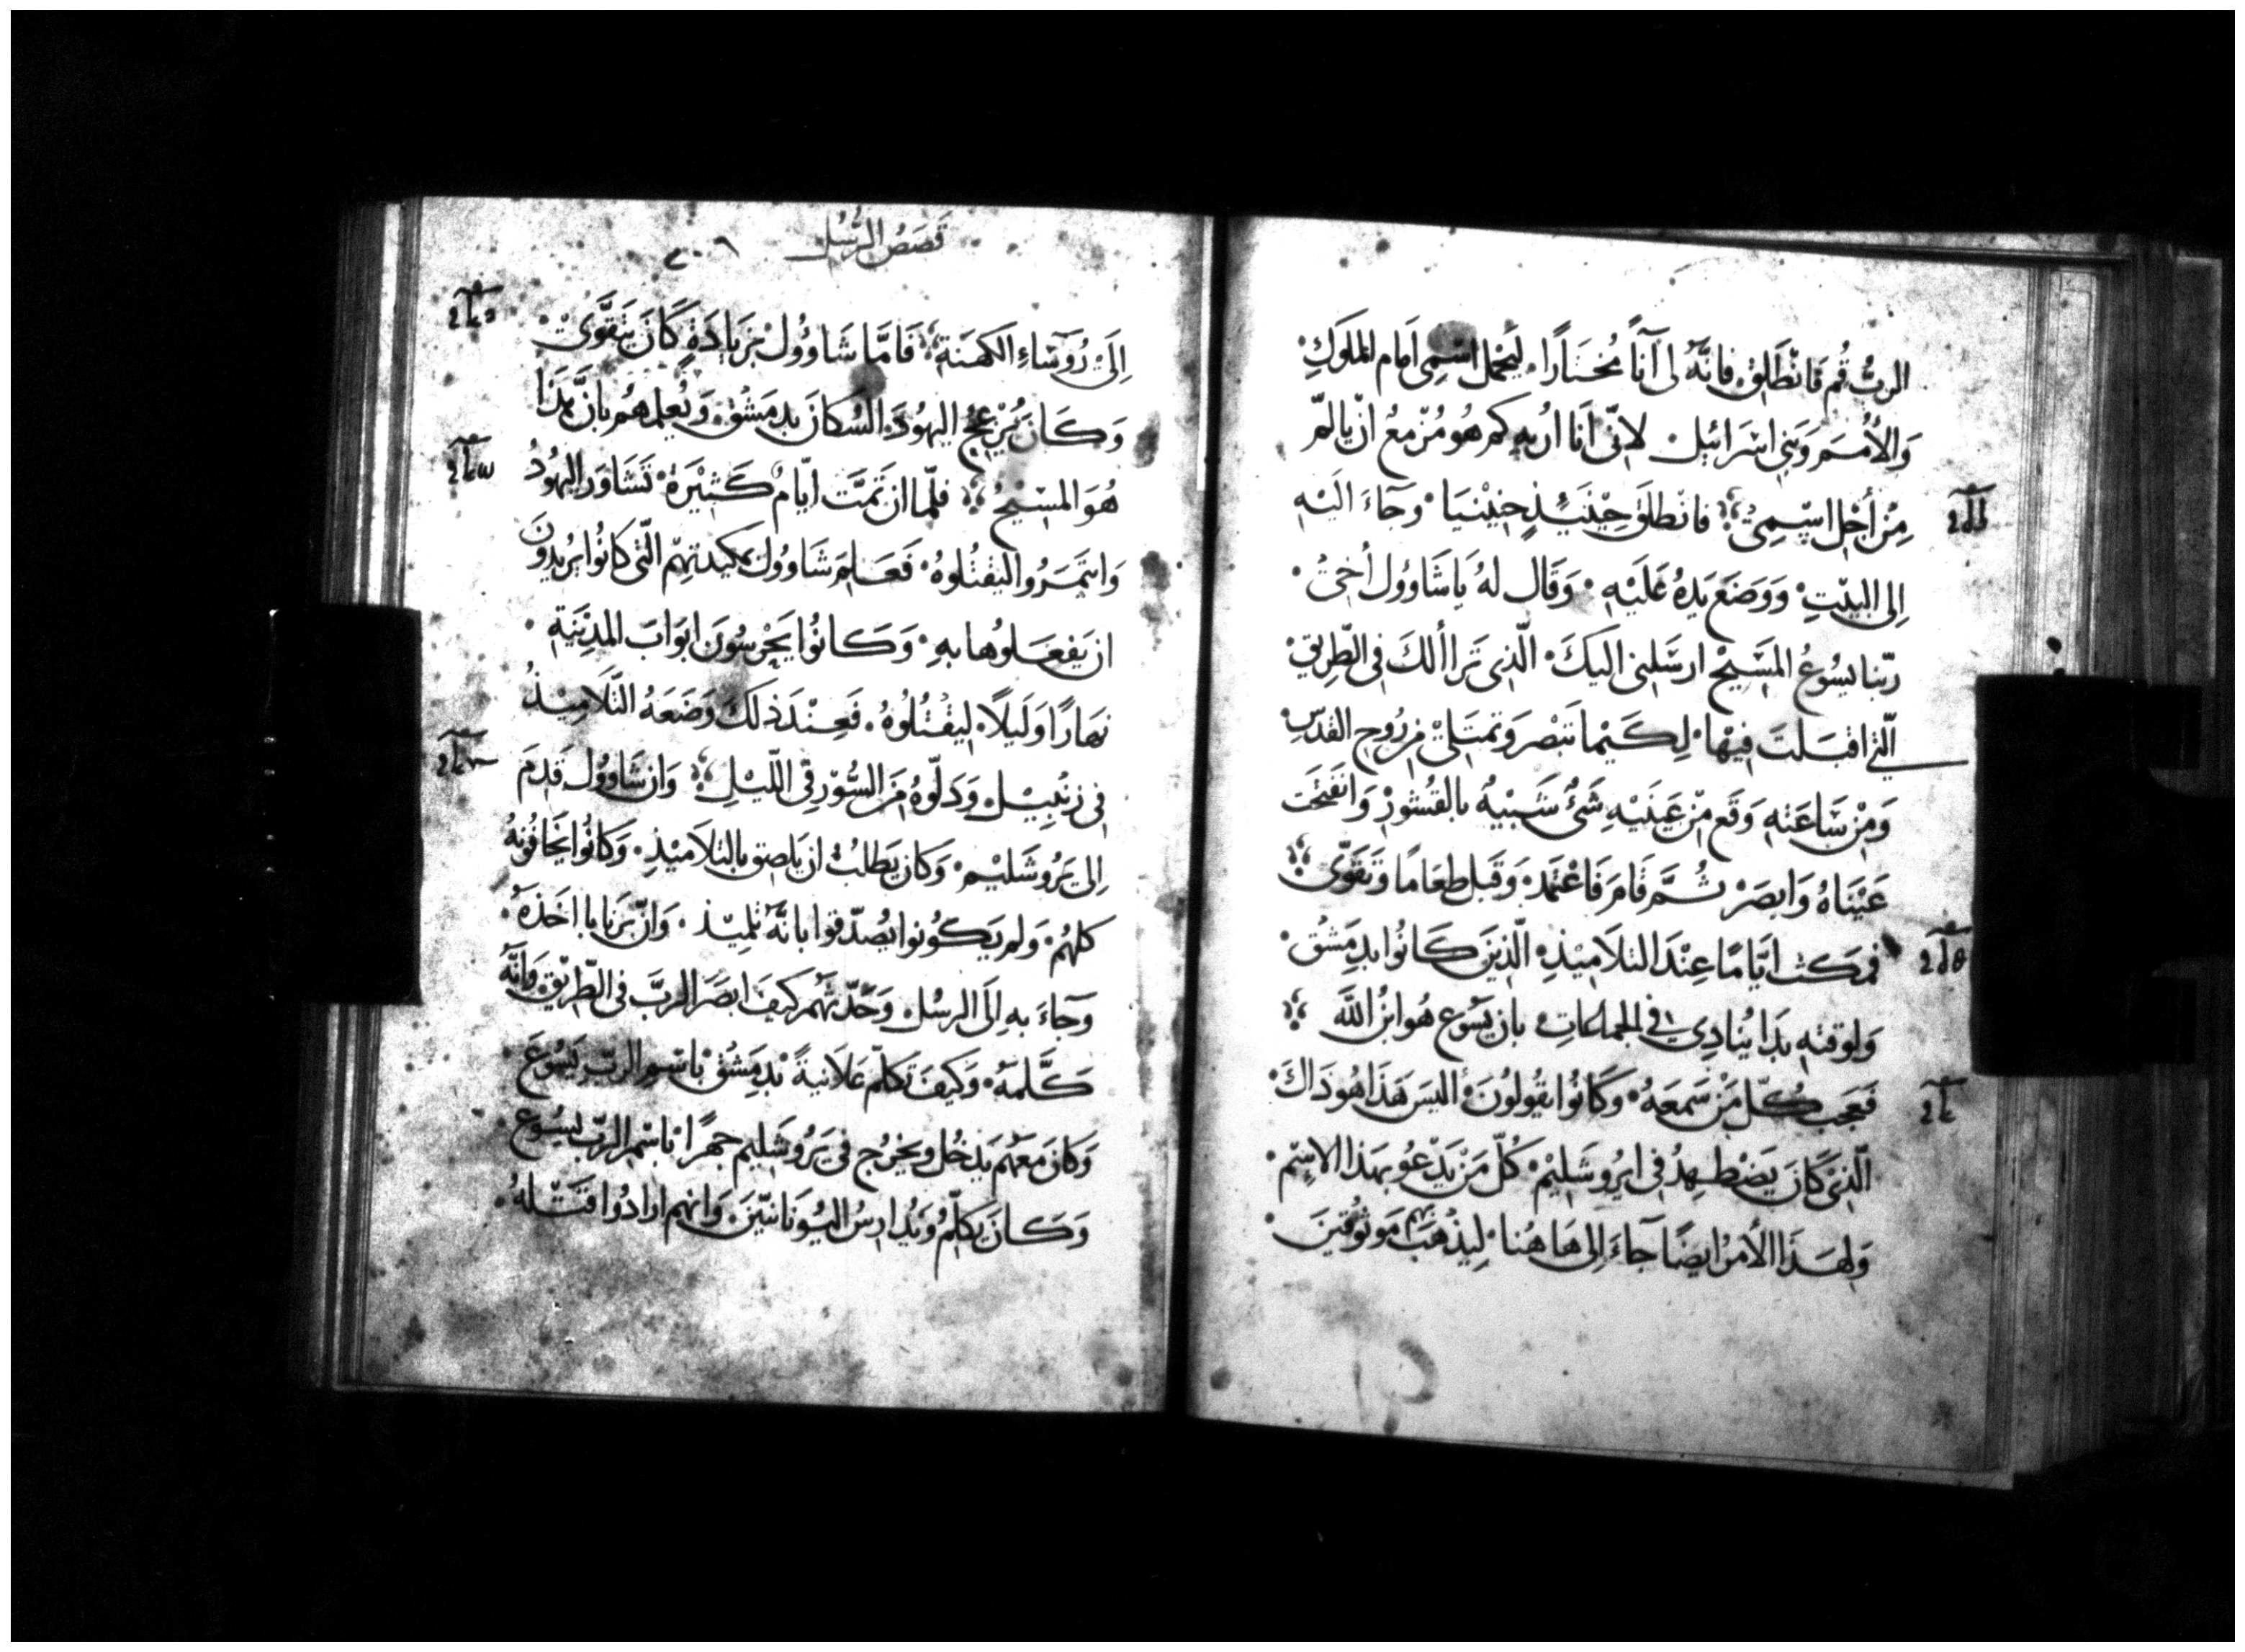 الربُّ قُم فَانْطَلِق فانَّهُ لى آنآً مُختَارًا ليَحْمل اسْمِى اَمام الملوَكِ
وَالاُمَم وَبَنِى اسْرَائيل لانّى اَنَا اُريهِ كم هُو مُزْمعُ انْ يالم
مِنْ اَجْل اسْمِىْ فانطلَقَ حِيْنَئِذٍ حنِيْنيَا وَجَآءَ الَيْهِ
اِلى البَيْتِ وَوَضَعَ يَدهُ عَلَيْهِ وَقَال لهُ يَا شَاوُول اُخىْ
ربّنا يسُوعُ المسَيحْ ارسَلنى اليكَ الّذِى تَراألكَ فِى الطّرِيقِ
الّتى اقبَلتَ فيْهَا لِكَيْما تَبْصر وَتمتَلىْ مِن رُوحِ القدسِ
وَمِنْ سَاعَتهِ وَقَع مِنْ عَينَيْهِ شَىْءٌ شَبْيهُ بالقُشُورْ وَانفَتَحَت
عَيْنَاهُ وَابصَرْ ثُمَّ قَامَ فَاعْتمدَ وَقَبل طعَامًا وَتَقَوّى
فمكث ايَّامًا عِنْدَ التلاَميْذِ الّذِينَ كَانُوا بدِمَشْق
وَلوقتهِ بَدا يُنادِي في الجماعَاتِ بان يَسُوع هُو ابنُ اللَّه
فَعَجب كُلّ مَنْ سَمعَهُ وَكَانُوا يقُولُونَ أليسَ هَذَا هُو ذاكَ
الّذِىْ كَانَ يَضْطهِدُ فى ايرُوشَلِيْم كُلّ مَنْ يَدْعُو بهَذا الاسْم
وَلهَذَا الاَمْر ايضًا جآءَ اِلى هَاهُنا لِيَذْهَبَ بهم مَوثُوقينَ
قَصَصُ الرُّسُل ٢٠٦
اِلَىْ رُوسَآءِ الكَهَنَة فَامَّا شَاوُول بزيَادَةٍ كَانَ يَتَقَوَّىْ
وَكَانَ يُزْعِجُ اليهُودَ السُكانَ بدِمَشْق وَيُعلمهُم بانَّ هَذا
هُوَ المَسْيحُ فلمّا ان تَمَّت ايّامٌ كَثيْرَةْ تَشَاوَر اليهُودُ
وَاتمَرُوا ليقتُلوهُ فَعَلم شَاوُول بمكيدتهم الّتى كانُوا يريدُونَ
ان يَفعَلوُها بهِ وَكَانُوا يَحْرسُونَ ابوَابَ المدِيْنَةِ
نَهارًا وَلَيلاً لِيقْتُلُوهُ فَعِنْد ذَلكَ وَضَعَهُ التَّلاَمِيْذُ
فِى زنْبِيْل وَدَلّوهُ مِنَ السُّورْ فِى اللّيْلِ وَان شَاوُول قَدِمَ
اِلى يَرُوشَليْم وَكان يَطلبُ ان يَلصِق بالتلاَميْذِ وَكانُوا يَخَافُونهُ
كلهُمْ وَلم يَكوُنوا يُصدّقوا بانَّهُ تلميْذ وَانّ بَرنابا اخَذهُ
وَجآءَ بهِ اِلَى الرسُل وَحَدّثهُم كَيفَ ابصَرَ الربَّ فى الطّرِيْق وَانَّهُ
كَلَّمهُ وَكَيفَ تكلّم عَلاَنيةً بدِمَشْق باسْم الربّ يَسُوعَ
وَكانَ مَعَهُم يَدخُل ويَخرُج فى يَرُوشَلِيم جهرًا باسْم الربّ يسُوع
وَكانَ يَكلّم وَيُدَارسُ اليُونَانيّينَ وَانهم ارادُوا قَتْلهُ